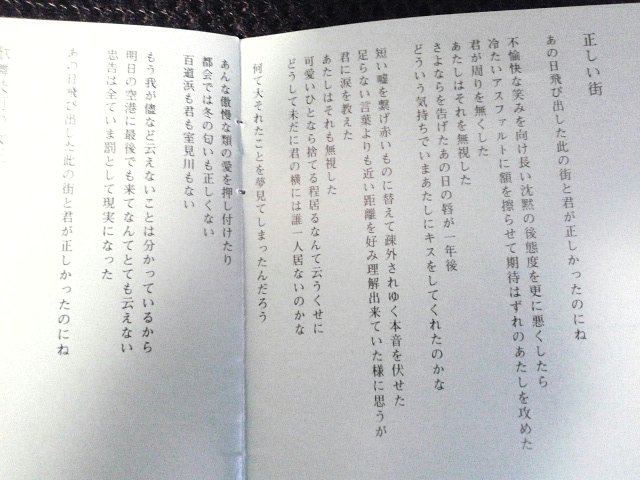 正しい街
あの日飛び出した此の街と君が正しかったのにね
不愉快な笑みを向け長い沈黙の後態度を更に悪くしたら
冷たいアスファルトに額を擦らせて期待はずれのあたしを攻めた
君が周りを無くした
あたしはそれを無視した
さよならを告げたあの日の唇が一年後
どういう気持ちでいまあたしにキスをしてくれたのかな
短い嘘を繋げ赤いものに替えて疎外されゆく本音を伏せた
足らない言葉よりも近い距離を好み理解出来ていた様に思うが
君に涙を教えた
あたしはそれも無視した
可愛いひとなら捨てる程居るなんて云うくせに
どうして未だに君の横には誰一人居ないのかな
何て大それたことを夢見てしまったんだろう
あんな傲慢な類の愛を押し付けたり
都会では冬の匂いも正しくない
百道浜も君も室見川もない
もう我が儘など云えないことは分かっているから
明日の空港に最後でも来てなんてとても云えない
忠告は全ていま罰として現実になった
あの日飛び出した此の街と君が正しかったのにね